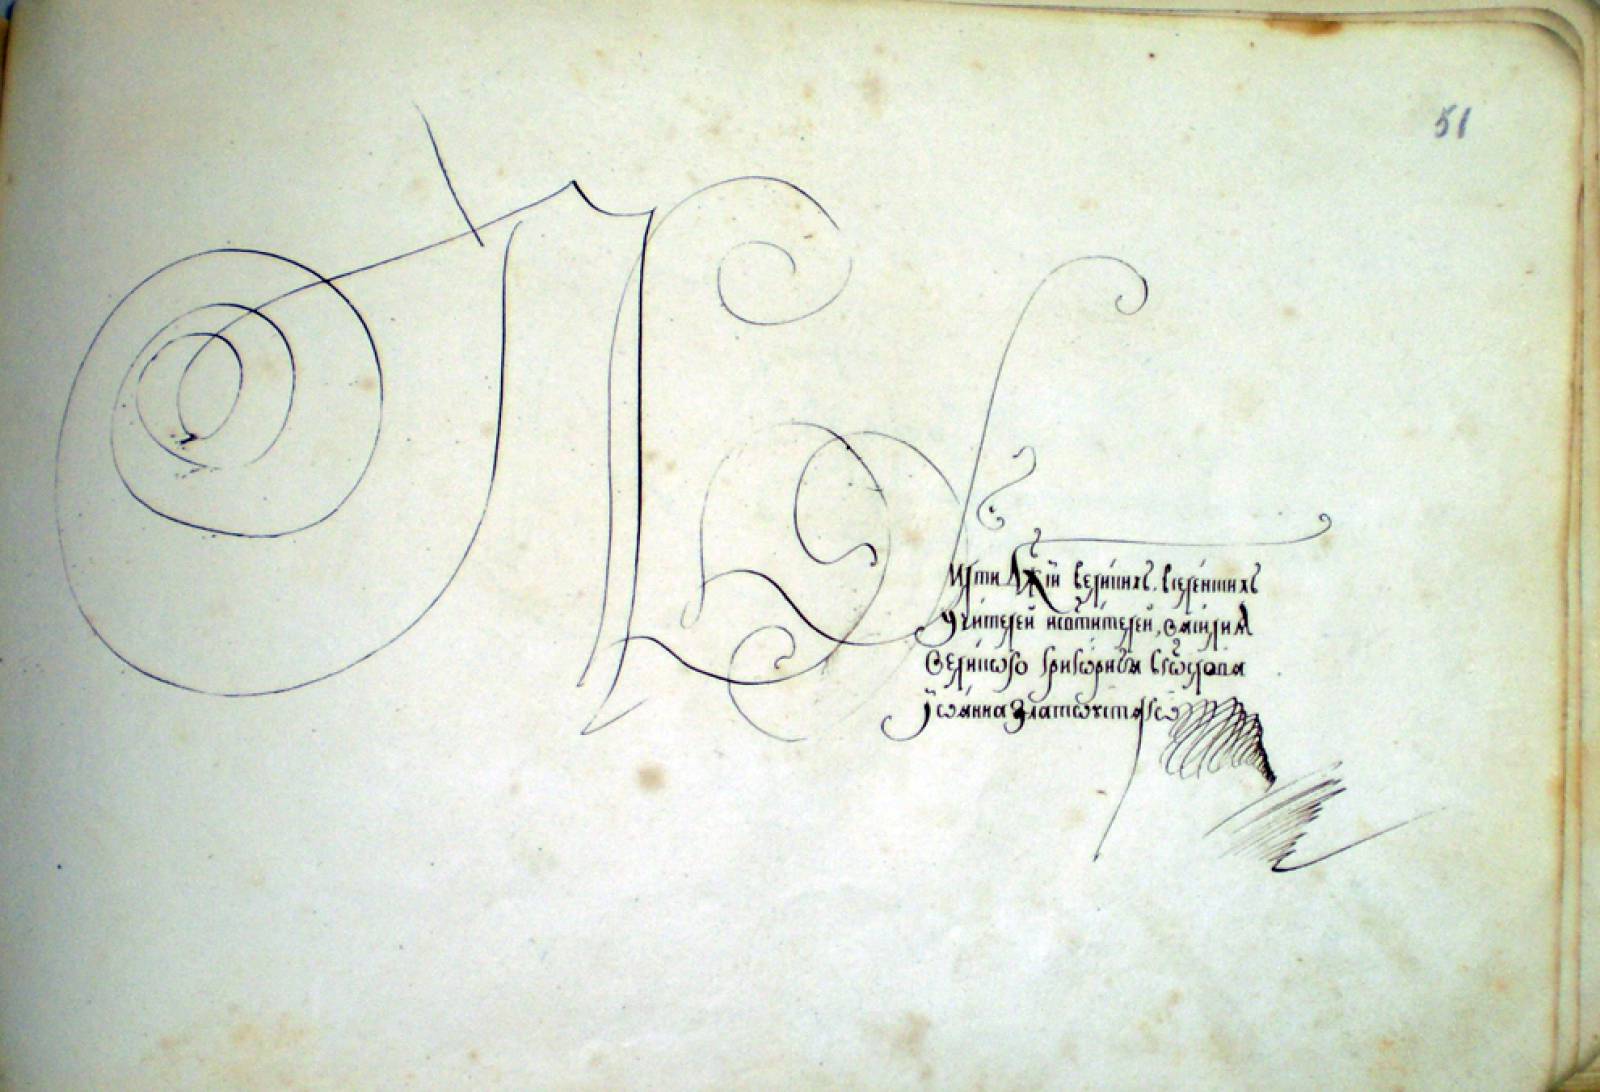 51
великихъ, вселенскихъ
учителей и святителей, василиѧ
великого григориѧ бгѡслова
їѡанна златѡустаго